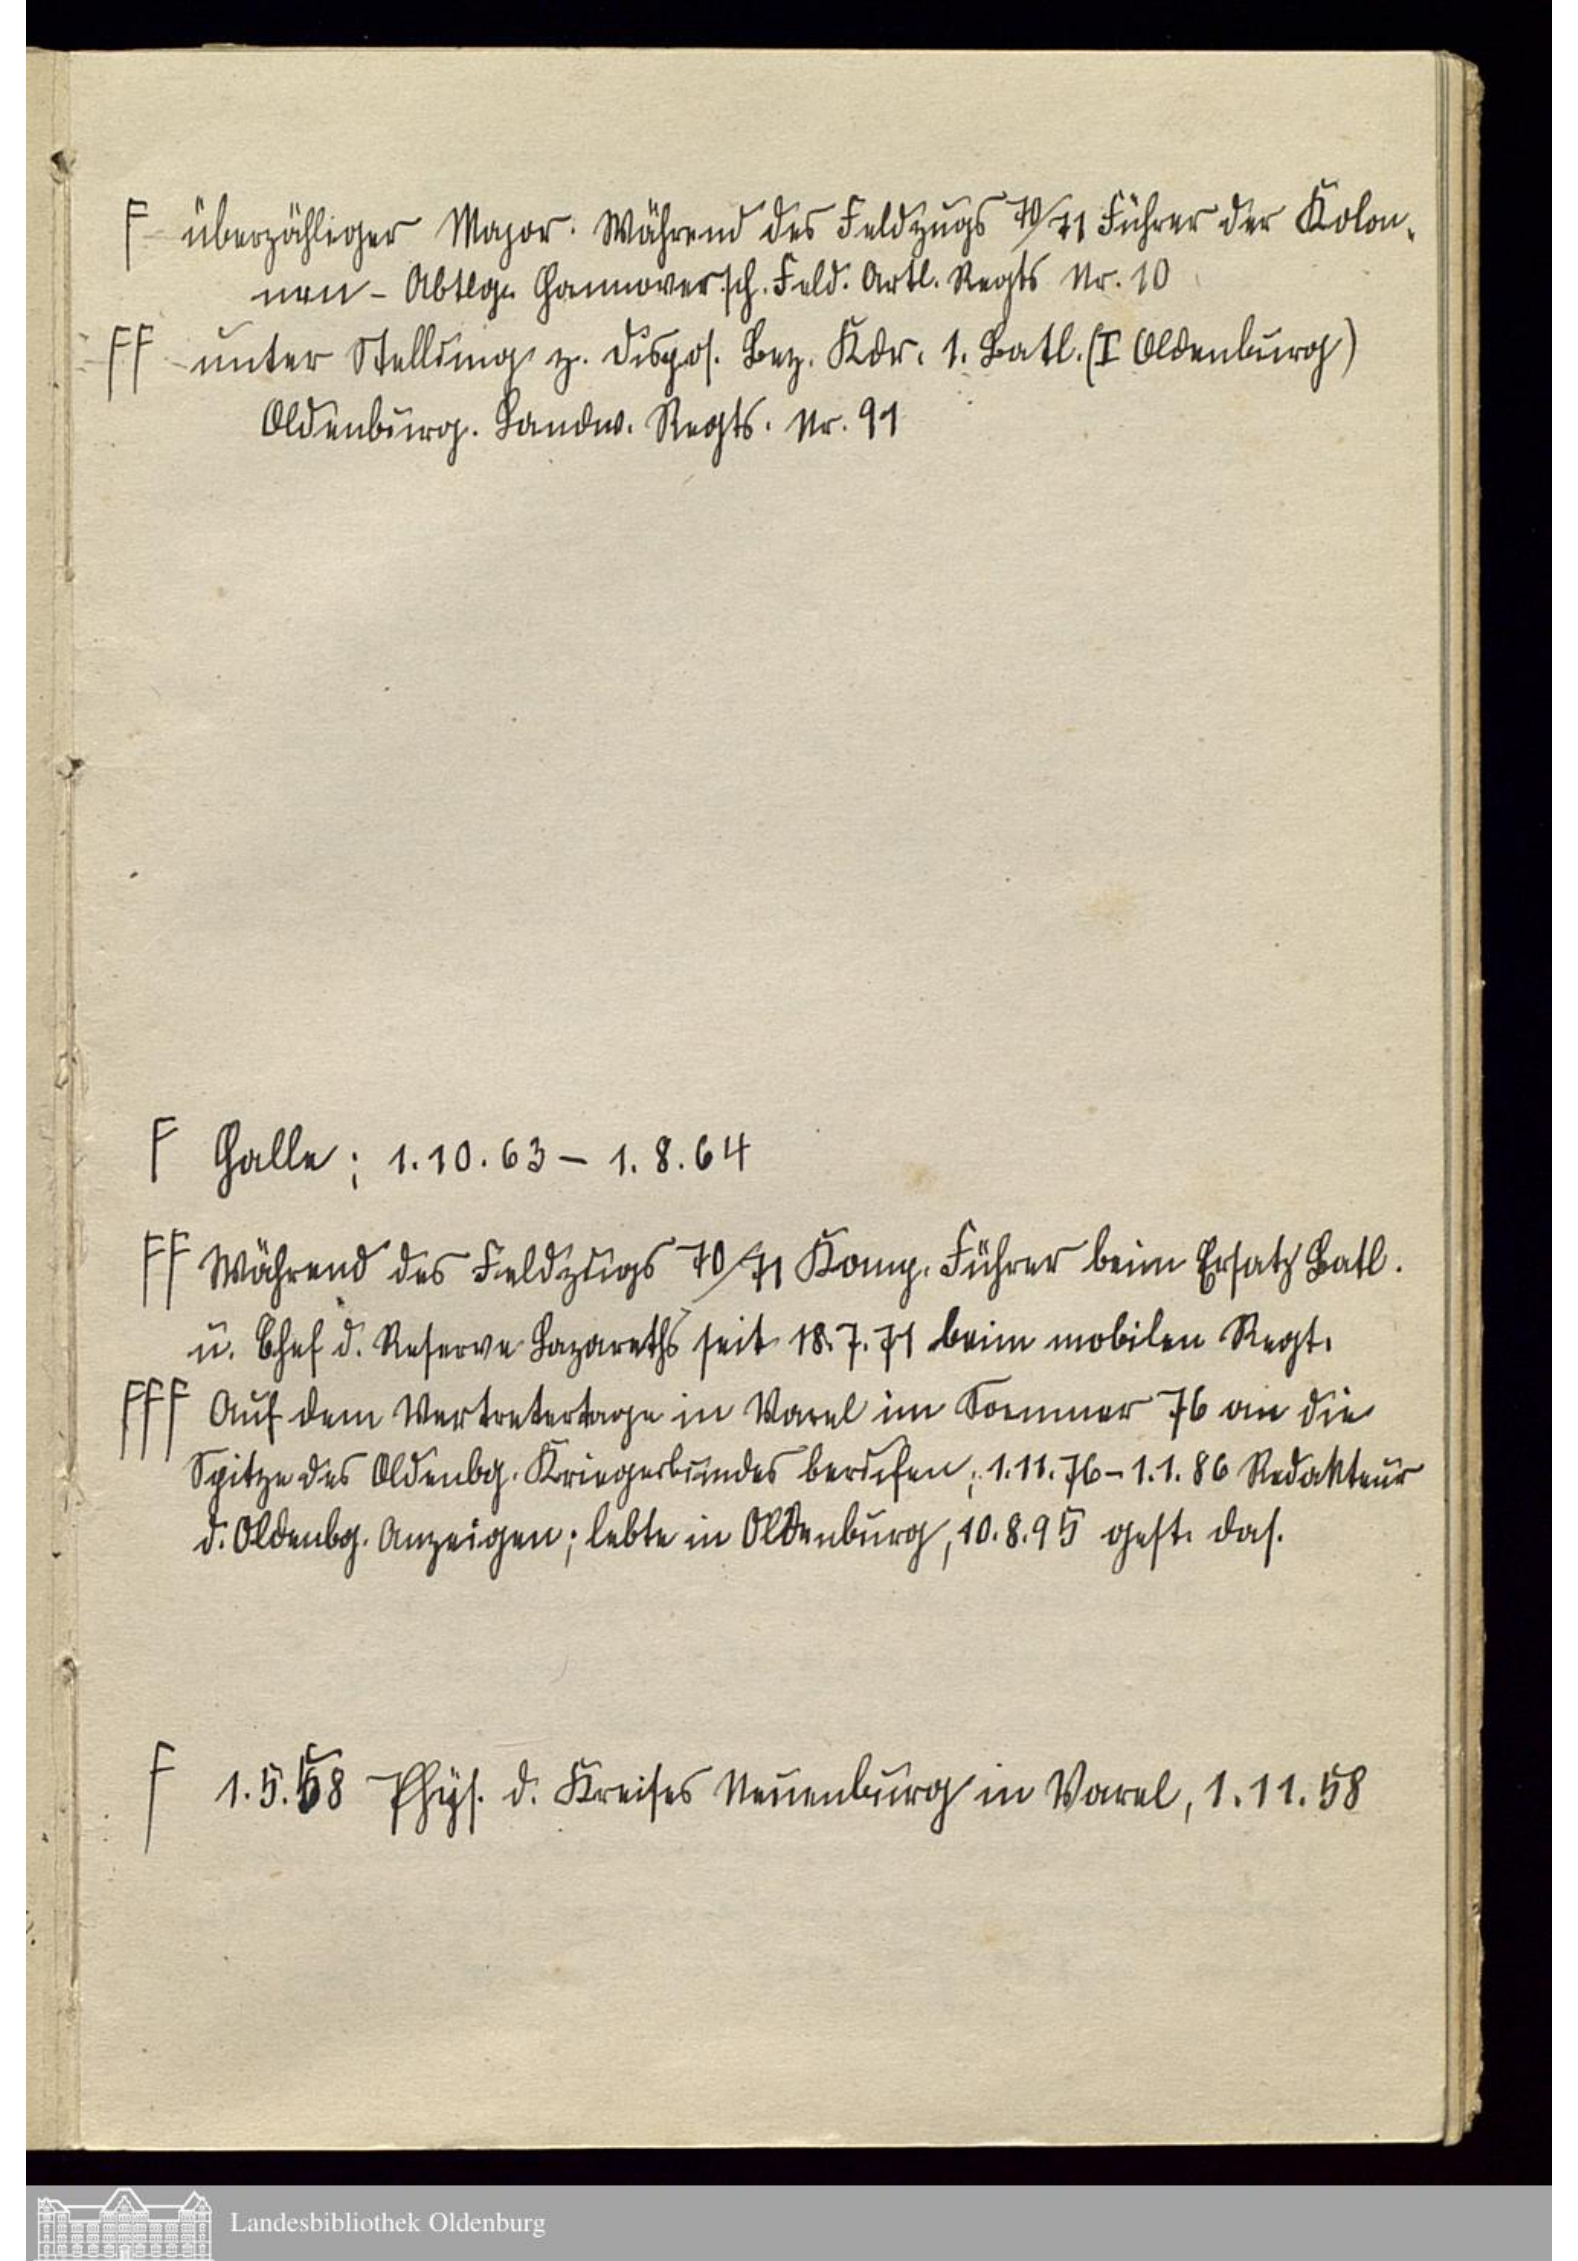 F überzähliger Major. Während des Feldzugs 70/71 Führer der Kolon-
nen - Abtlg. Hannoversch. Feld. Artl. Regts Nr. 10
FF unter Stellung z. Dispos. Bez. Kdr. 1. Batl. (I Oldenburg)
Oldenburg. Landw. Regts. Nr. 91
F Halle; 1.10.63 - 1.8.64
FF Während des Feldzugs 70/71 Komp. Führer beim Ersatz Batl.
u. Chef d. Reserve Lazareths seit 18.7.71 beim mobilen Regt.
FFF Auf dem Vertretertage in Varel im Sommer 76 an die
Spitze des Oldenbg. Kriegerbundes berufen; 1.11.76 - 1.1.86 Redakteur
d. Oldenbg. Anzeigen; lebte in Oldenburg, 10.8.95 gest. das.
F 1.5.58 Phys. d. Kreises Neuenburg in Varel, 1.11.58
Landesbibliothek Oldenburg